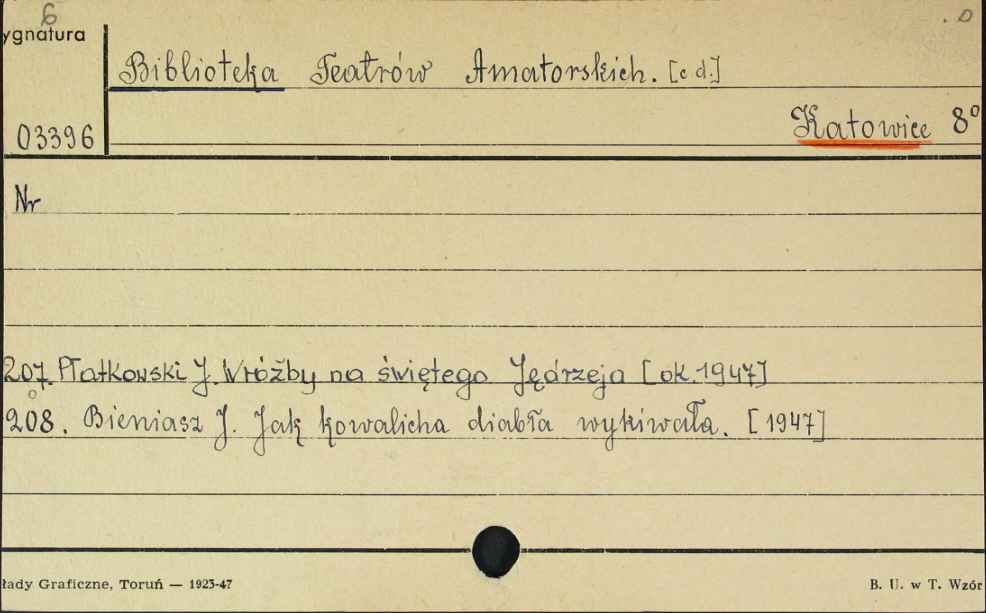 6
ygnatura
Biblioteka Teatrów Amatorskich. [c d.]
03396
Katowice 8º
Nr
207. Płatkowski J. Wróżby na świętego Jędrzeja [ok. 1947]
208. Bieniasz J. Jak kowalicha diabła wykiwała. [1947]
łady Graficzne, Toruń — 1923-47
B. U. w T. Wzór